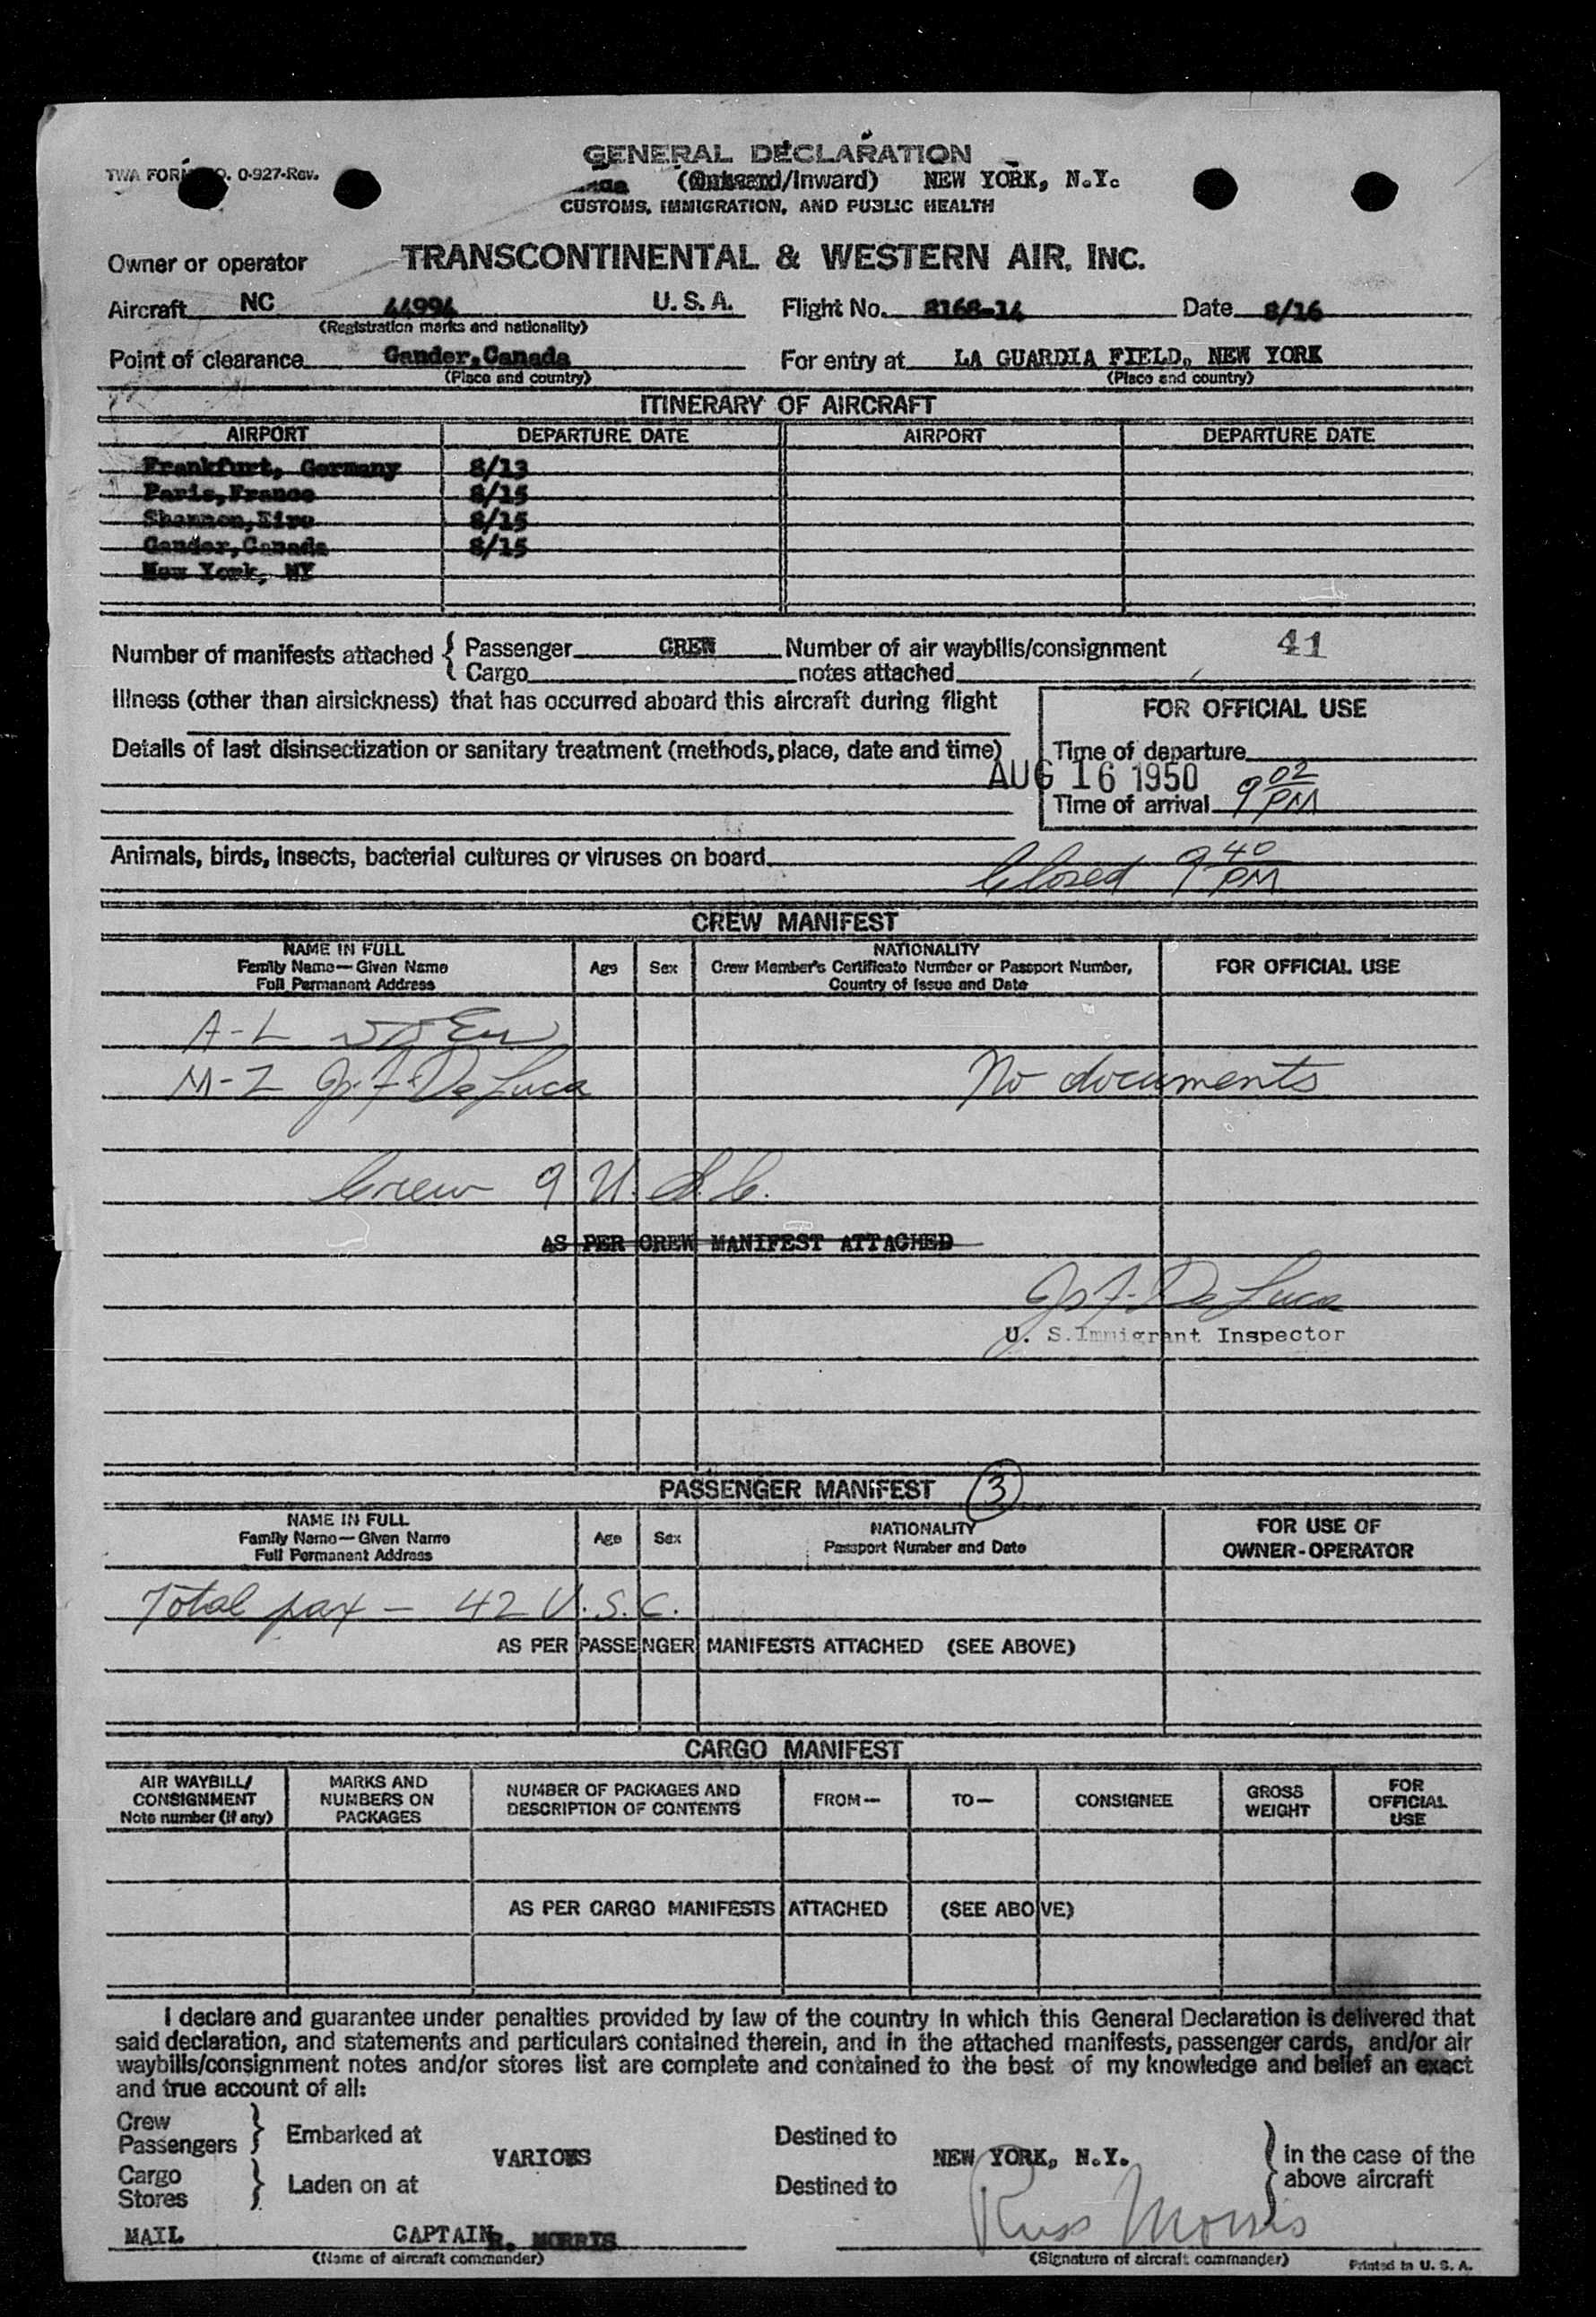 GENERAL DECLARATION
TWA FORM NO. 0-927-Rev.
(Outward/Inward) NEW YORK, N.Y.
CUSTOMS, IMMIGRATION, AND PUBLIC HEALTH
Owner or operator TRANSCONTINENTAL & WESTERN AIR, INC.
Aircraft NC 44994 U. S. A. Flight No. 8168-14 Date 8/16
(Registration marks and nationality)
Point of clearance Gander,Canada For entry at LA GUARDIA FIELD, NEW YORK
(Place and country) (Place and country)
ITINERARY OF AIRCRAFT
AIRPORT DEPARTURE DATE AIRPORT DEPARTURE DATE
Frankfurt, Germany 8/13
Paris,France 8/15
Shannon,Eire 8/15
Gander,Canada 8/15
New York, NY
41
Number of manifests attached { Passenger CREW Number of air waybills/consignment
Cargo notes attached
Illness (other than airsickness) that has occurred aboard this aircraft during flight
FOR OFFICIAL USE
Details of last disinsectization or sanitary treatment (methods, place, date and time)
Time of departure
AUG 16 1950
Time of arrival 9 02 PM
Animals, birds, insects, bacterial cultures or viruses on board
Closed 9 40 PM
CREW MANIFEST
NAME IN FULL Family Name—Given Name Full Permanent Address Age Sex NATIONALITY Crew Member's Certificate Number or Passport Number, Country of Issue and Date FOR OFFICIAL USE
A-L
M-Z Js. F. DeLuca No documents
Crew 9 U.S.C.
AS PER CREW MANIFEST ATTACHED
Js. F. DeLuca
U. S. Immigrant Inspector
PASSENGER MANIFEST 3
NAME IN FULL Family Name—Given Name Full Permanent Address Age Sex NATIONALITY Passport Number and Date FOR USE OF OWNER-OPERATOR
Total pax - 42 U.S.C.
AS PER PASSENGER MANIFESTS ATTACHED (SEE ABOVE)
CARGO MANIFEST
AIR WAYBILL/ CONSIGNMENT Note number (if any) MARKS AND NUMBERS ON PACKAGES NUMBER OF PACKAGES AND DESCRIPTION OF CONTENTS FROM— TO— CONSIGNEE GROSS WEIGHT FOR OFFICIAL USE
AS PER CARGO MANIFESTS ATTACHED (SEE ABOVE)
I declare and guarantee under penalties provided by law of the country in which this General Declaration is delivered that
said declaration, and statements and particulars contained therein, and in the attached manifests, passenger cards, and/or air
waybills/consignment notes and/or stores list are complete and contained to the best of my knowledge and belief an exact
and true account of all:
Crew
Passengers } Embarked at Destined to
VARIOUS NEW YORK, N.Y. } in the case of the
Cargo
Stores } Laden on at Destined to above aircraft
MAIL CAPTAIN R. MORRIS Russ Morris
(Name of aircraft commander) (Signature of aircraft commander) Printed in U. S. A.